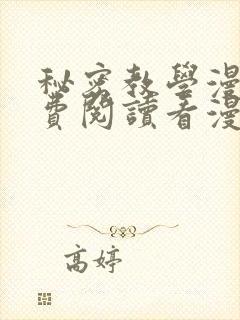 秘密教學漫
費閱讀看漫
高婷